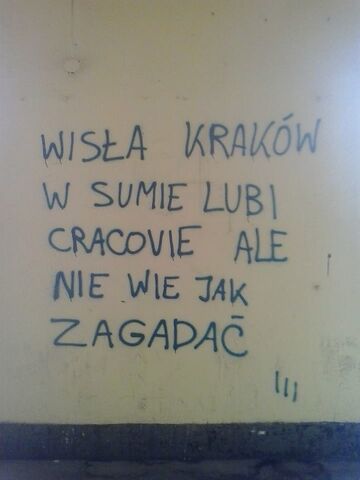 WISŁA KRAKÓW
W SUMIE LUBI
CRACOVIE ALE
NIE WIE JAK
ZAGADAĆ
III